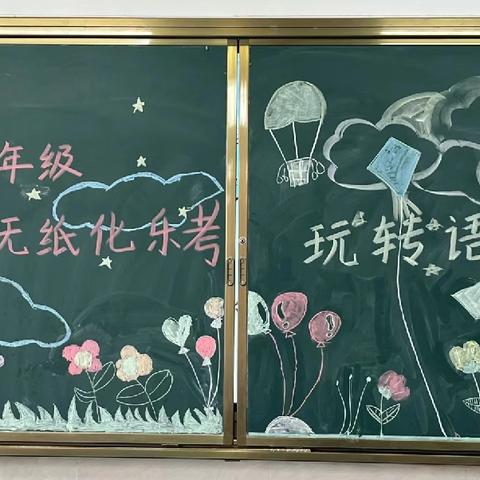 年级
无纸化乐考
玩转语